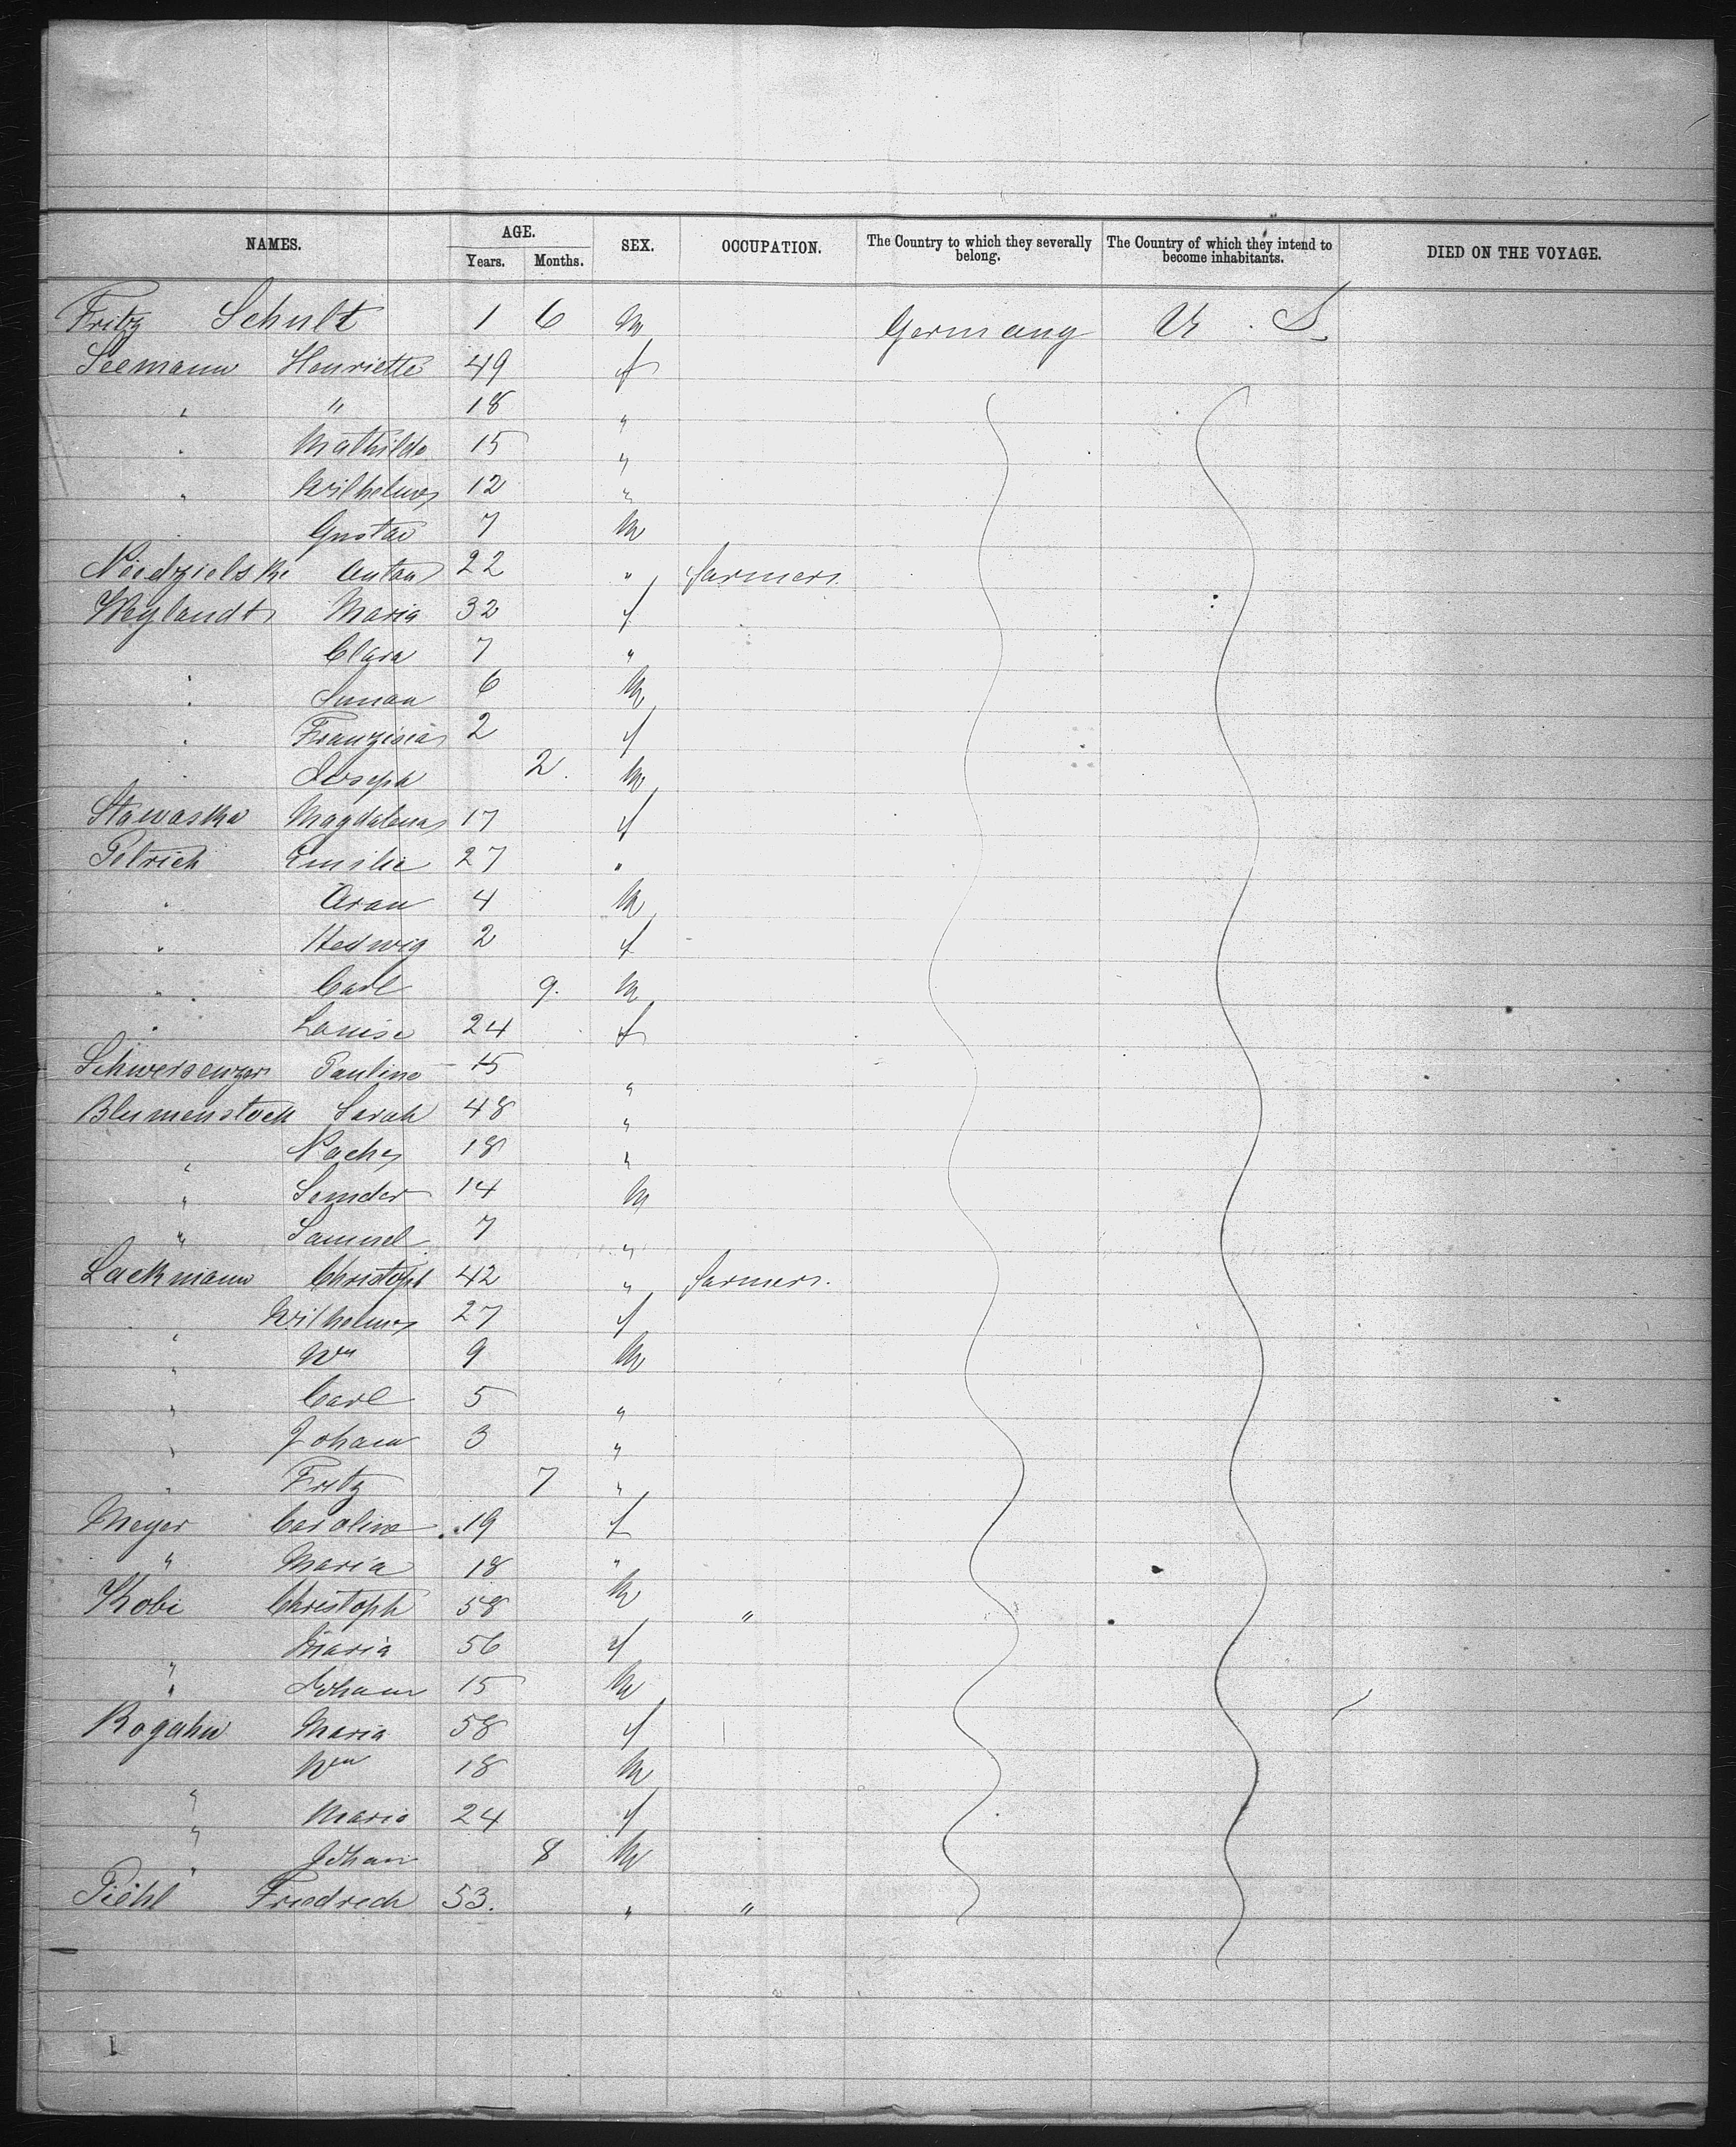 NAMES. AGE. SEX. OCCUPATION. The Country to which they severally belong. The Country of which they intend to become inhabitants. DIED ON THE VOYAGE.
Years. Months.
Fritz Schult 1 6 m Germany U. S.
Seemann Henriette 49 f
" " 18 "
" Mathilde 15 "
" Wilhelmy 12 "
" Gustav 7 m
Niedzielski Anton 22 " farmer.
Weylandt Maria 32 f
Clara 7 "
" 6 m
" Franziska 2 f
" Joseph 2. m
Stawaska Magdalena 17 f
Petrich Emilie 27 "
" 4 m
" Hedwig 2 f
" Carl 9. m
" Louise 24 f
Schwersenzer Pauline 15 "
Blumenstock Sarah 48 "
" 18 "
" Sender 14 m
" Samuel 7 "
Lackmann Christoph 42 " farmer.
" Wilhelmy 27 f
" Wm 9 m
" Carl 5 "
" Johann 3 "
" Fritz 7 "
Meyer Caroline 19 f
" Maria 18 "
Kobi Christoph 58 m "
" Maria 56 f
" Johann 15 m
Rogahn Maria 58 f
" Wm 18 m
" Maria 24 f
" Johan 8 m
Piehl Friedrich 53. " "